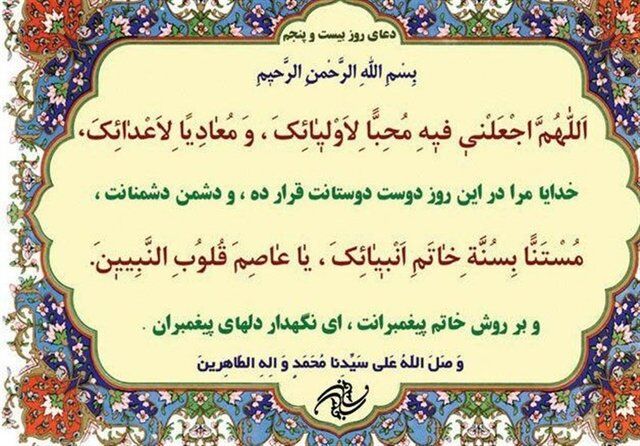 دعای روز بیست و پنجم
بِسْمِ اللهِ الرَّحْمنِ الرَّحیمِ
اَللّٰهُمَّ اجْعَلْني فیٖهِ مُحِبًّا لِاَوْلِیٰائِکَ ، وَ مُعٰادِیًا لِاَعْدٰائِکَ،
خدایا مرا در این روز دوست دوستانت قرار ده ، و دشمن دشمنانت ،
مُسْتَنًّا بِسُنَّةِ خٰاتَمِ اَنْبِیٰائِکَ ، یٰا عٰاصِمَ قُلُوبِ النَّبِیینَ.
و بر روش خاتم پیغمبرانت ، ای نگهدار دلهای پیغمبران .
وَ صَلَ اللهُ عَلی سَیِّدِنا مُحَمَدٍ وَ الِهِ الطّاهِرینَ